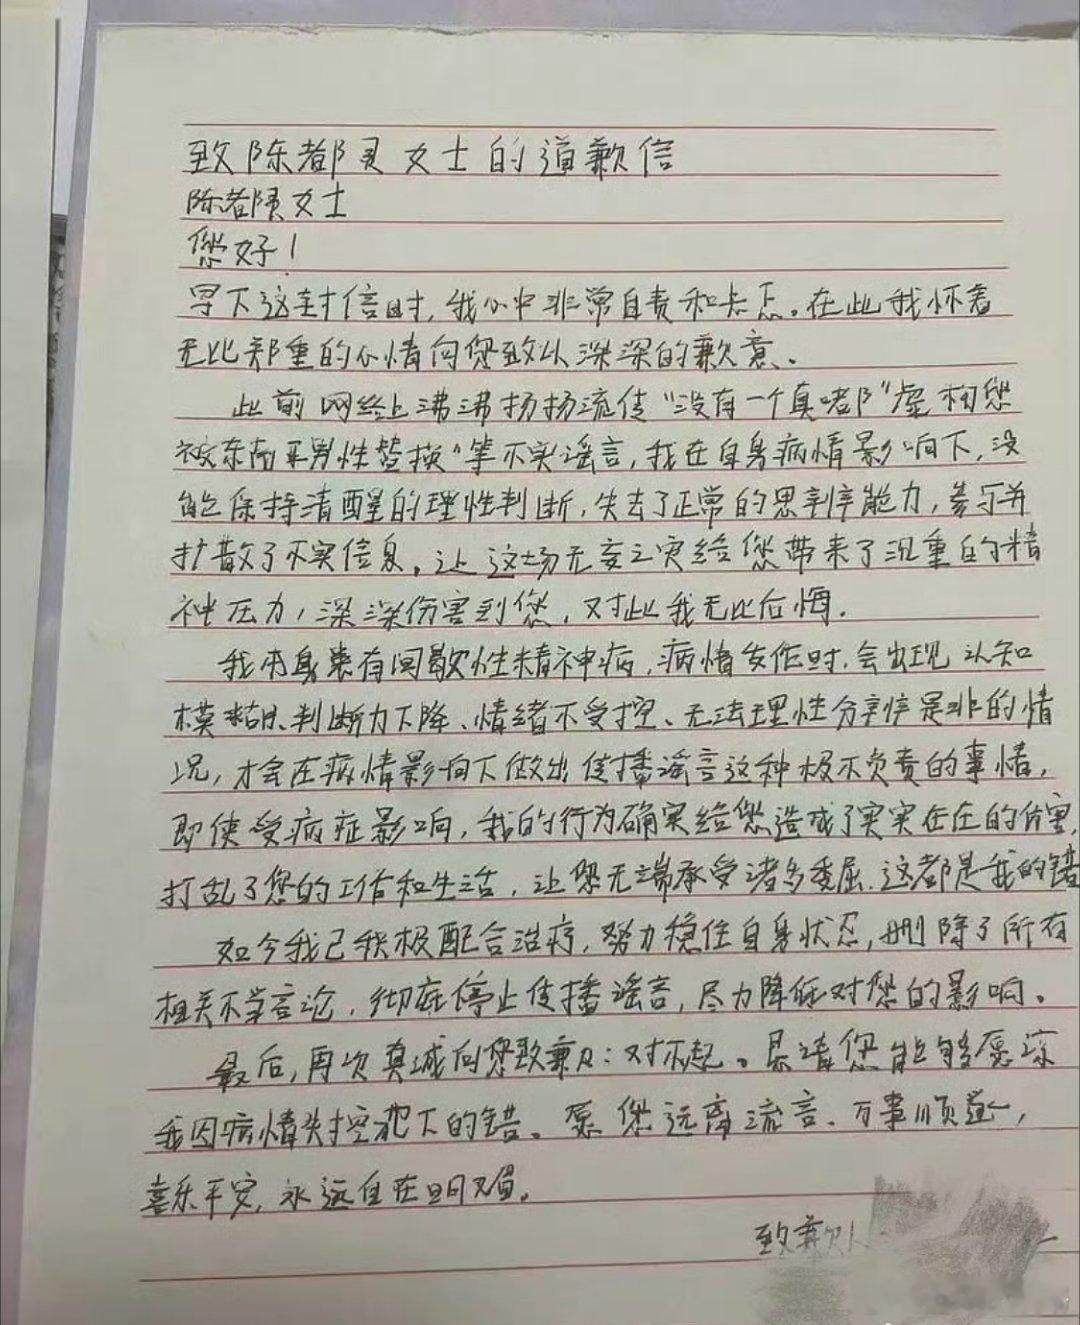 致陈都灵女士的道歉信
陈都灵女士
您好！
写下这封信时,我心中非常自责和忐忑。在此我怀着
无比郑重的心情向您致以深深的歉意、
此前网络上沸沸扬扬流传“没有一个真啫耶”虚构您
被东南亚男性替换“等不实谣言,我在自身病情影响下,没
能保持清醒的理性判断,失去了正常的思辨能力,参与并
扩散了不实信息。让这场无妄之灾给您带来了沉重的精
神压力,深深伤害到您,对此我无比后悔.
我本身患有间歇性精神病,病情发作时.会出现认知
模糊、判断力下降、情绪不受控、无法理性分辨是非的情
况,才会在病情影响下做出传播谣言这种极不负责的事情,
即使受病症影响,我的行为确实给您造成了实实在在的伤害,
打乱了您的工作和生活,让您无端承受诸多委屈.这都是我的错
如今我已积极配合治疗,努力稳住自身状态,删除了所有
相关不当言论,彻底停止传播谣言,尽力降低对您的影响。
最后,再次真诚向您致歉:对不起。恳请您能够原谅
我因病情失控犯下的错。愿您远离流言、万事顺遂,
喜乐平安,永远自在明媚。
致歉人